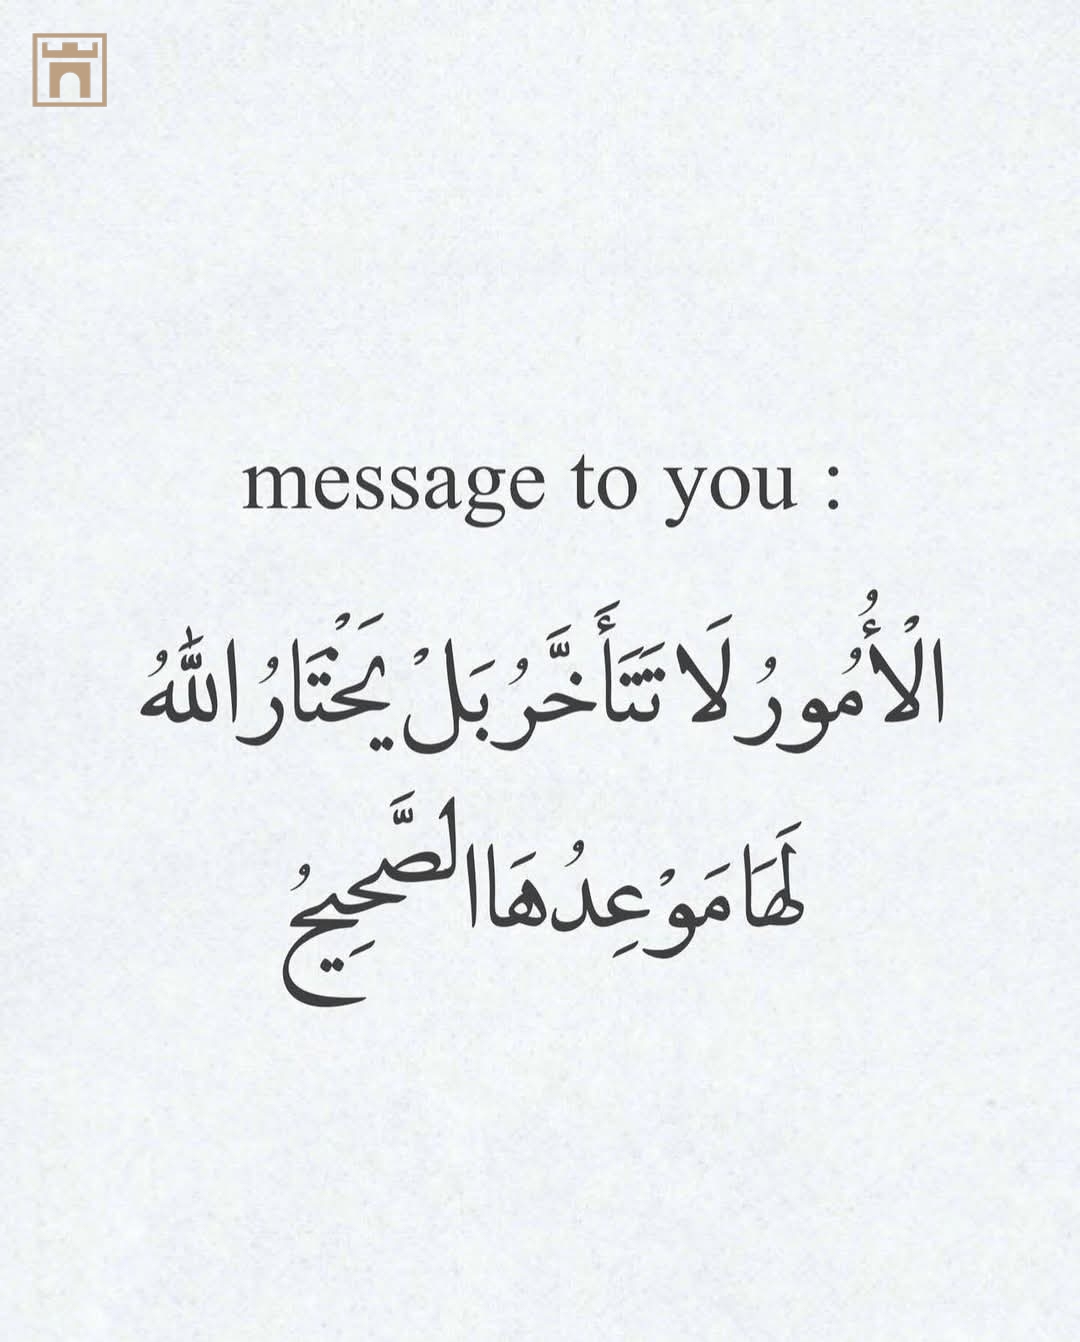 message to you :
الْأُمُورُ لَا تَتَأَخَّرُ بَلْ يَخْتَارُ اللّٰهُ
لَهَا مَوْعِدُهَا الصَّحِيحُ